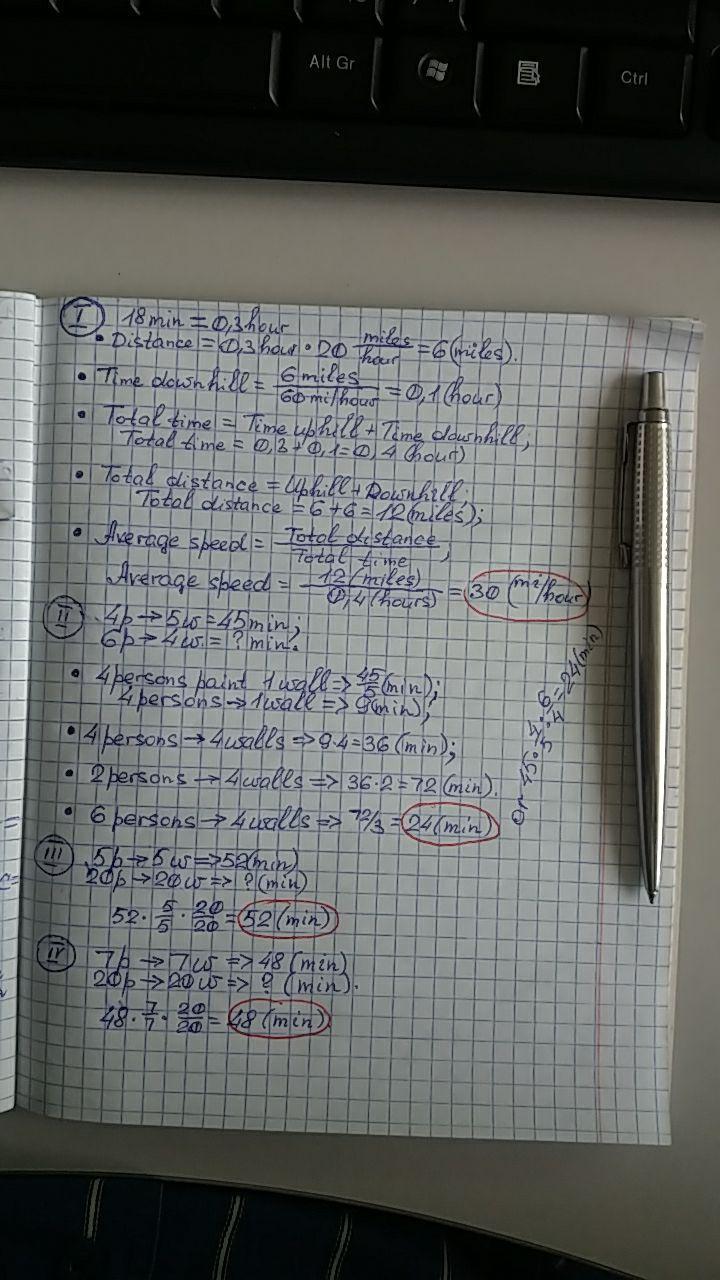 Alt Gr
Ctrl
I 18 min = 0,3 hour
• Distance = 0,3 hour · 20 miles/hour = 6 (miles).
• Time downhill = 6 miles / 60 mi/hour = 0,1 (hour)
• Total time = Time uphill + Time downhill;
Total time = 0,3 + 0,1 = 0,4 (hour)
• Total distance = Uphill + Downhill;
Total distance = 6 + 6 = 12 (miles);
• Average speed = Total distance / Total time;
Average speed = 12 (miles) / 0,4 (hours) = 30 (mi/hour)
II 4p → 5w = 45 min;
6p → 4w = ? min.
• 4 persons paint 1 wall => 45/5 (min);
4 persons → 1 wall => 9 (min);
• 4 persons → 4 walls => 9·4 = 36 (min);
• 2 persons → 4 walls => 36·2 = 72 (min).
• 6 persons → 4 walls => 72/3 = 24 (min)
= 24 (min)
III 5p → 5w => 52 (min)
20p → 20w => ? (min)
52 · 5/5 · 20/20 = 52 (min)
IV 7p → 7w => 48 (min)
20p → 20w => ? (min).
48 · 7/7 · 20/20 = 48 (min)